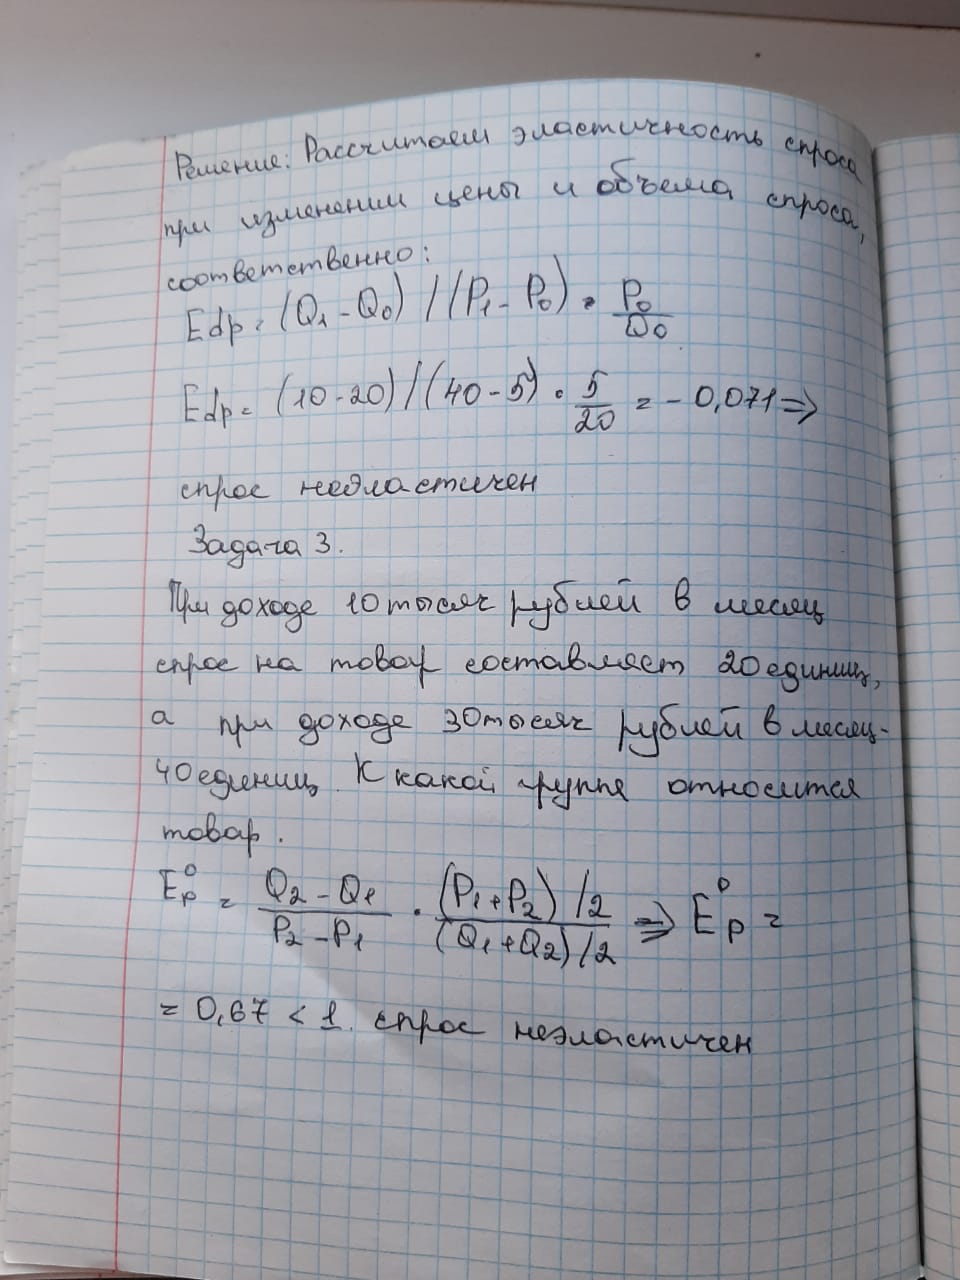 Решение: Рассчитаем эластичность спроса
при изменении цены и объема спроса,
соответственно:
Edp = (Q₁ - Q₀) / (P₁ - P₀) · P₀/Q₀
Edp = (10-20)/(40-5) · 5/20 = - 0,071 ⇒
спрос неэластичен
Задача 3.
При доходе 10 тысяч рублей в месяц
спрос на товар составляет 20 единиц,
а при доходе 30 тысяч рублей в месяц-
40 единиц. К какой группе относится
товар.
E_p^D = (Q₂ - Q₁)/(P₂ - P₁) · ((P₁ + P₂)/2)/((Q₁ + Q₂)/2) ⇒ E_p^D =
= 0,67 < 1. спрос неэластичен